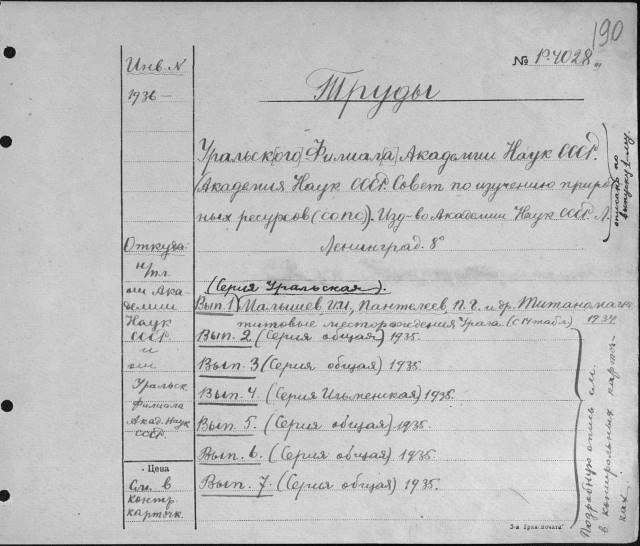 190
№ Р.4028
Инв. N
1936 —
Труды
Уральск[ого] Филиал[а] Академии Наук СССР.
(Академия Наук СССР. Совет по изучению природ-
ных ресурсов (СОПС)). Изд-во Академии Наук СССР. Л.
Ленинград. 8°
описать по
выпускному.
Откуда
ип.
от Ака-
демии
Наук
СССР
и
от
Уральск
Филиала
Акад. Наук
СССР.
(Серия Уральская).
Вып. 1) Малышев И.И., Пантелеев П.Г. и др. Титаномагне-
титовые месторождения Урала. (с 14 табл.) 1934
Вып. 2. (Серия общая) 1935.
Вып. 3 (Серия общая) 1935.
Вып. 4 (Серия Ильменская) 1935.
Вып. 5. (Серия общая) 1935.
Вып. 6. (Серия общая) 1935.
Вып. 7. (Серия общая) 1935.
Подробную опись см.
в контрольных карточ-
ках.
· Цена
См. в
контр.
карточк.